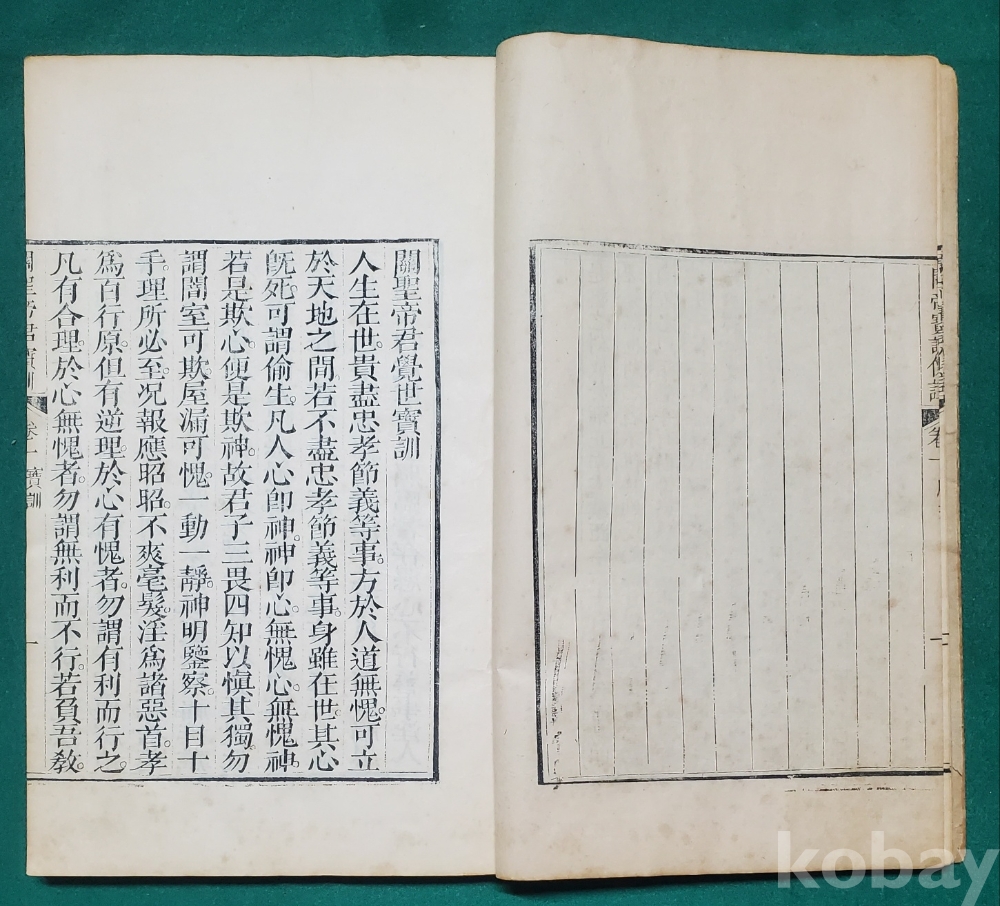 關聖帝君覺世寶訓
人生在世。貴盡忠孝節義等事。方於人道無愧。可立
於天地之間。若不盡忠孝節義等事。身雖在世。其心
旣死。可謂偷生。凡人心卽神。神卽心。無愧心。無愧神。
若是欺心。便是欺神。故君子三畏四知。以愼其獨。勿
謂闇室可欺。屋漏可愧。一動一靜。神明鑒察。十目十
手。理所必至。况報應昭昭。不爽毫髮。淫爲諸惡首。孝
爲百行原。但有逆理。於心有愧者。勿謂有利而行之。
凡有合理。於心無愧者。勿謂無利而不行。若負吾敎。
關聖帝君寶訓 卷一 寶訓 一
卷一
kobay